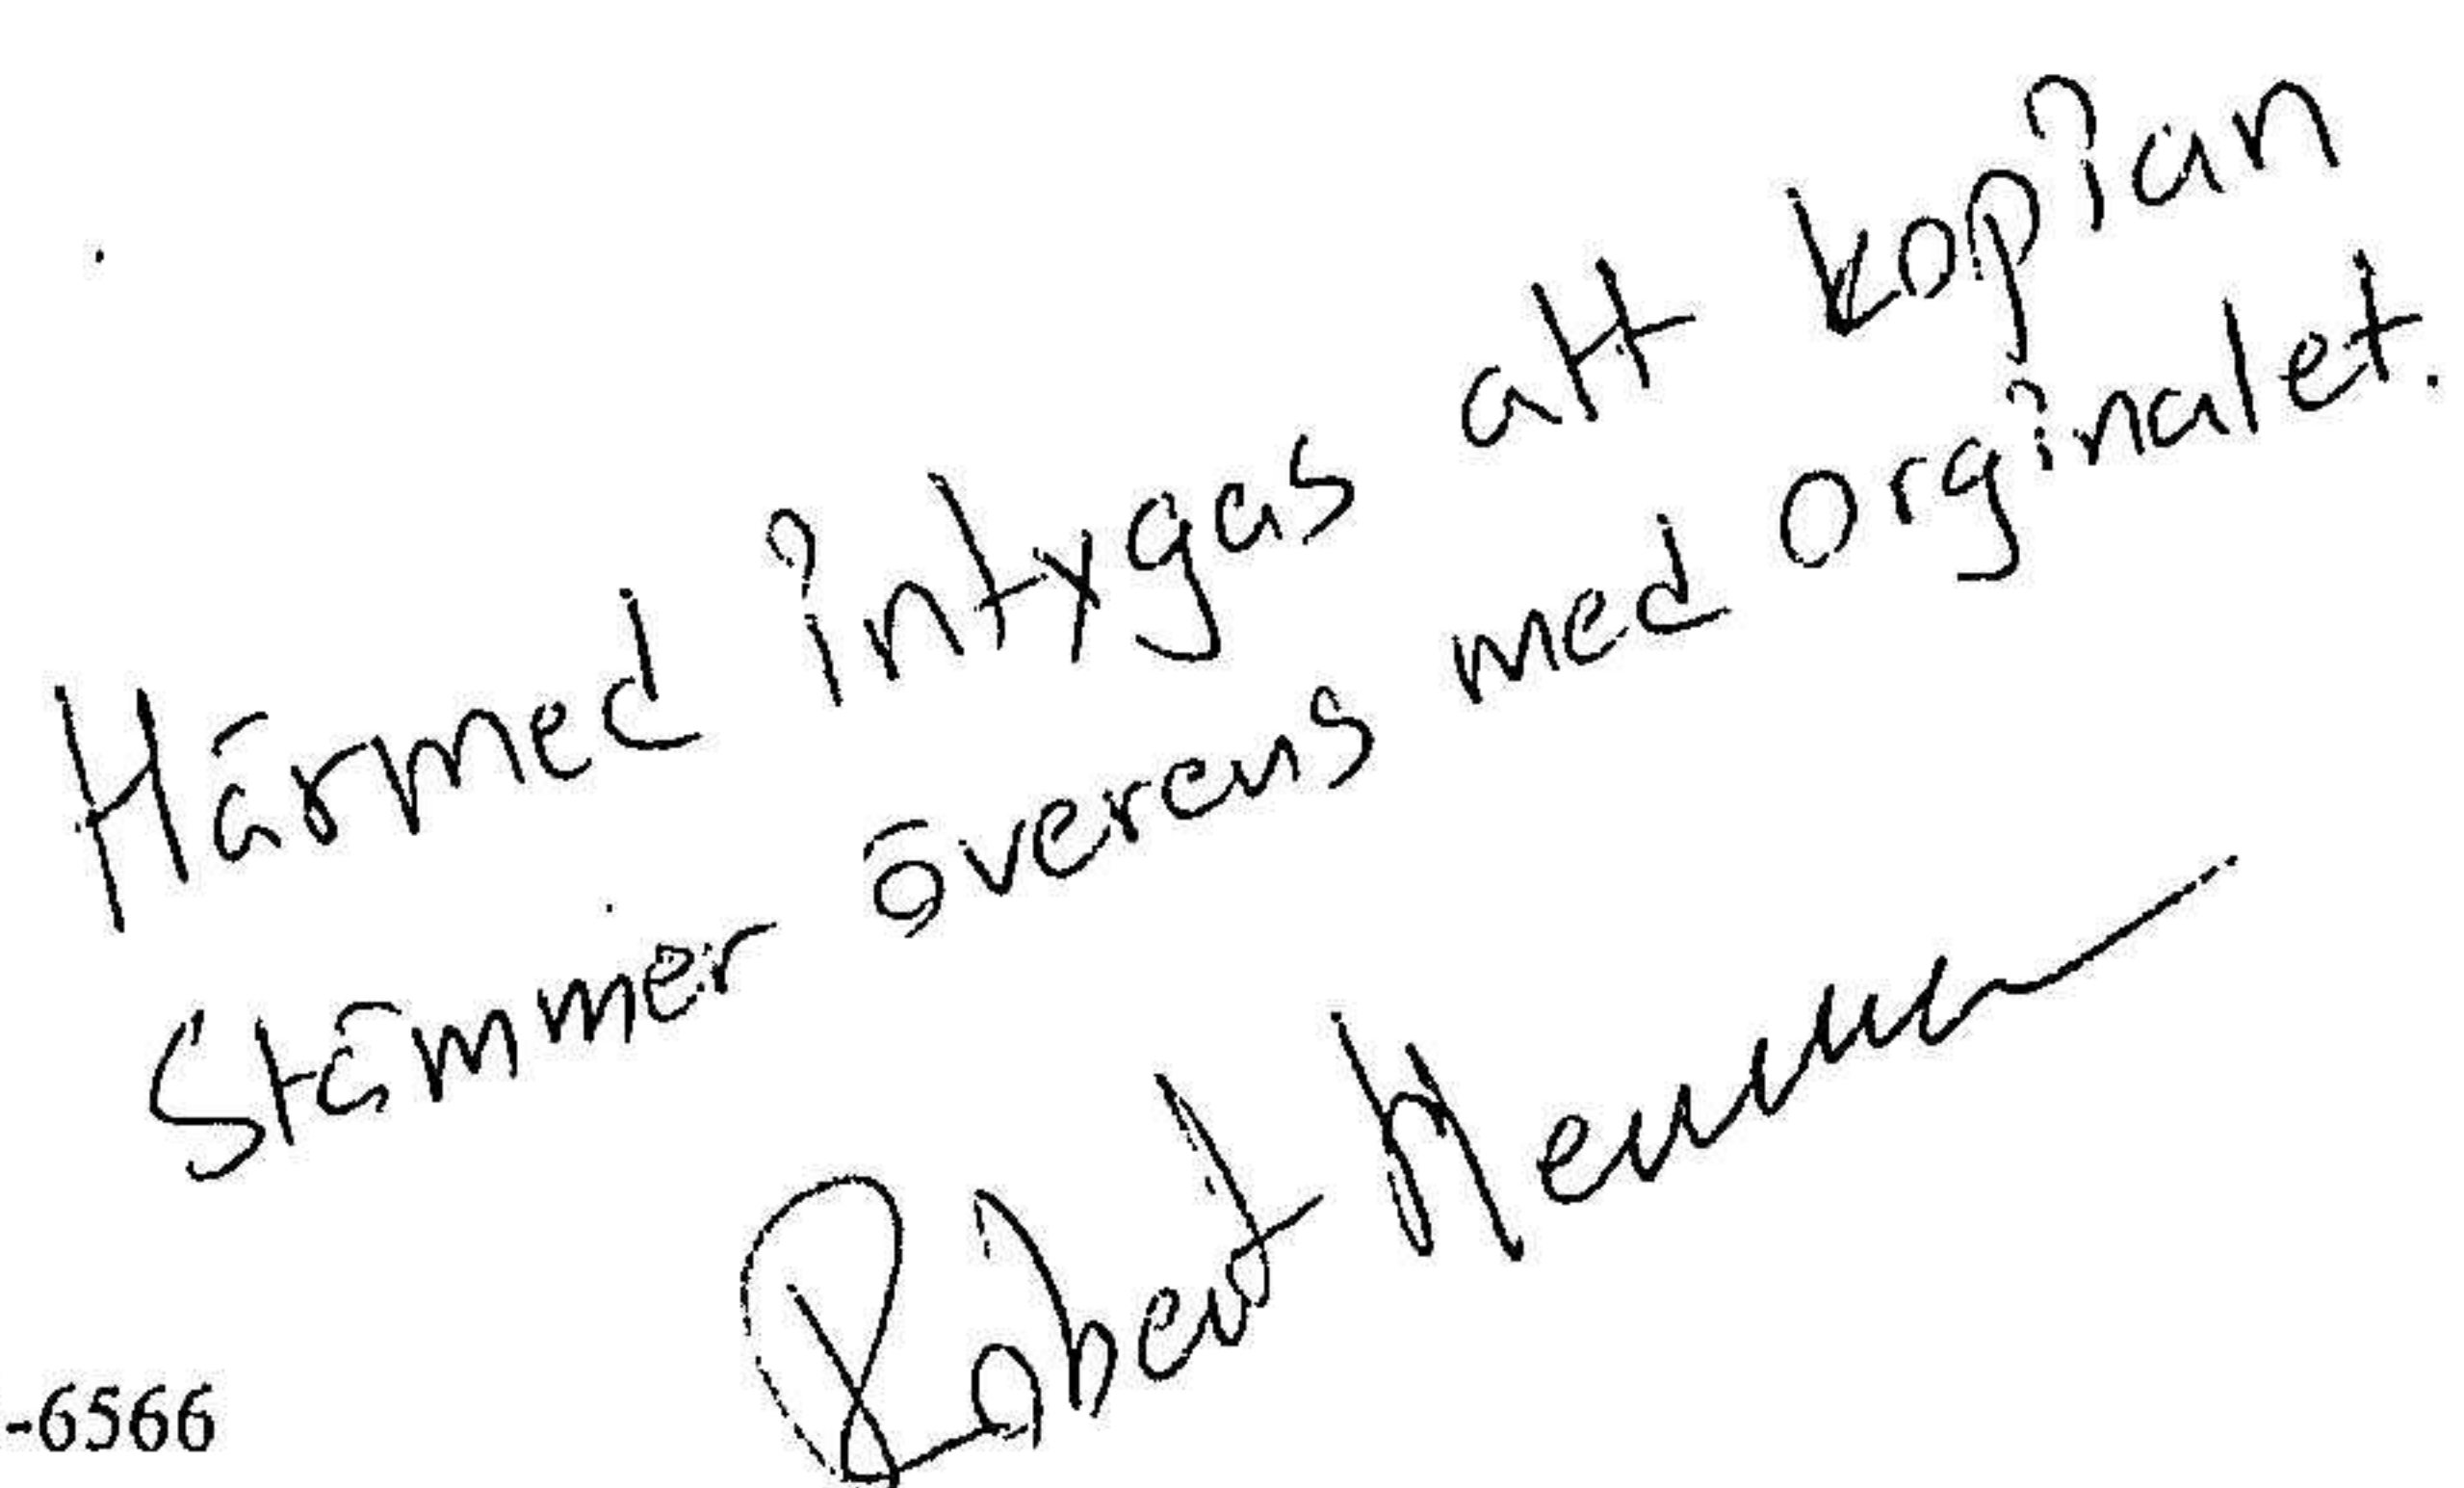 Härmed intygas att kopian
Stämmer överens med orginalet.
Robert
-6566